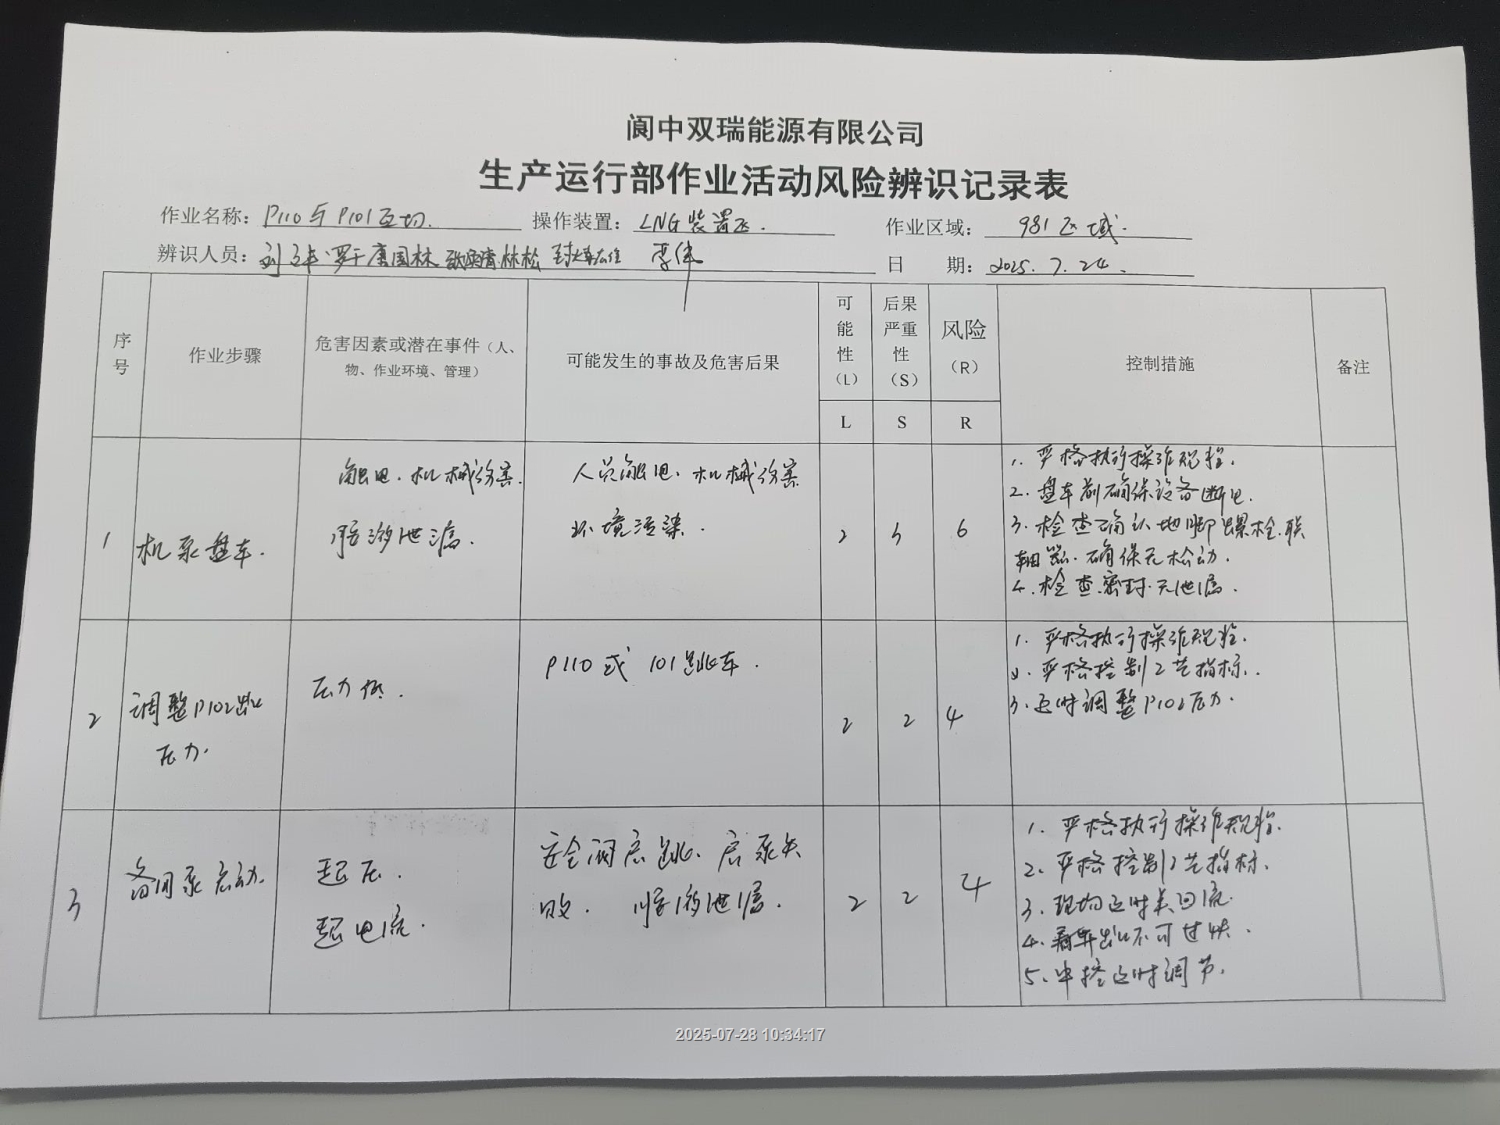 阆中双瑞能源有限公司
生产运行部作业活动风险辨识记录表
作业名称：P110与P101互切. 操作装置：LNG装置区. 作业区域：981区域.
辨识人员：罗于 唐国林 林松 李伟 日 期：2025.7.24.
序号 作业步骤 危害因素或潜在事件（人、物、作业环境、管理） 可能发生的事故及危害后果 可能性（L） 后果严重性（S） 风险（R） 控制措施 备注
L S R
1 机泵盘车. 触电、机械伤害. 人员触电、机械伤害 2 3 6
胺液泄漏. 环境污染.
1. 严格执行操作规程.
2. 盘车前确保设备断电.
3. 检查确认地脚螺栓.联
轴器.确保无松动.
4. 检查密封.无泄漏.
2 调整P102出口 压力低. P110或101跳车. 2 2 4
压力.
1. 严格执行操作规程.
2. 严格控制工艺指标.
3. 及时调整P102压力.
3 备用泵启动. 超压. 安全阀启跳、启泵失 2 2 4
超电流. 败. 胺液泄漏.
1. 严格执行操作规程.
2. 严格控制工艺指标.
3. 现场及时关回流.
4. 出口不可过快.
5. 中控及时调节.
2025-07-28 10:34:17